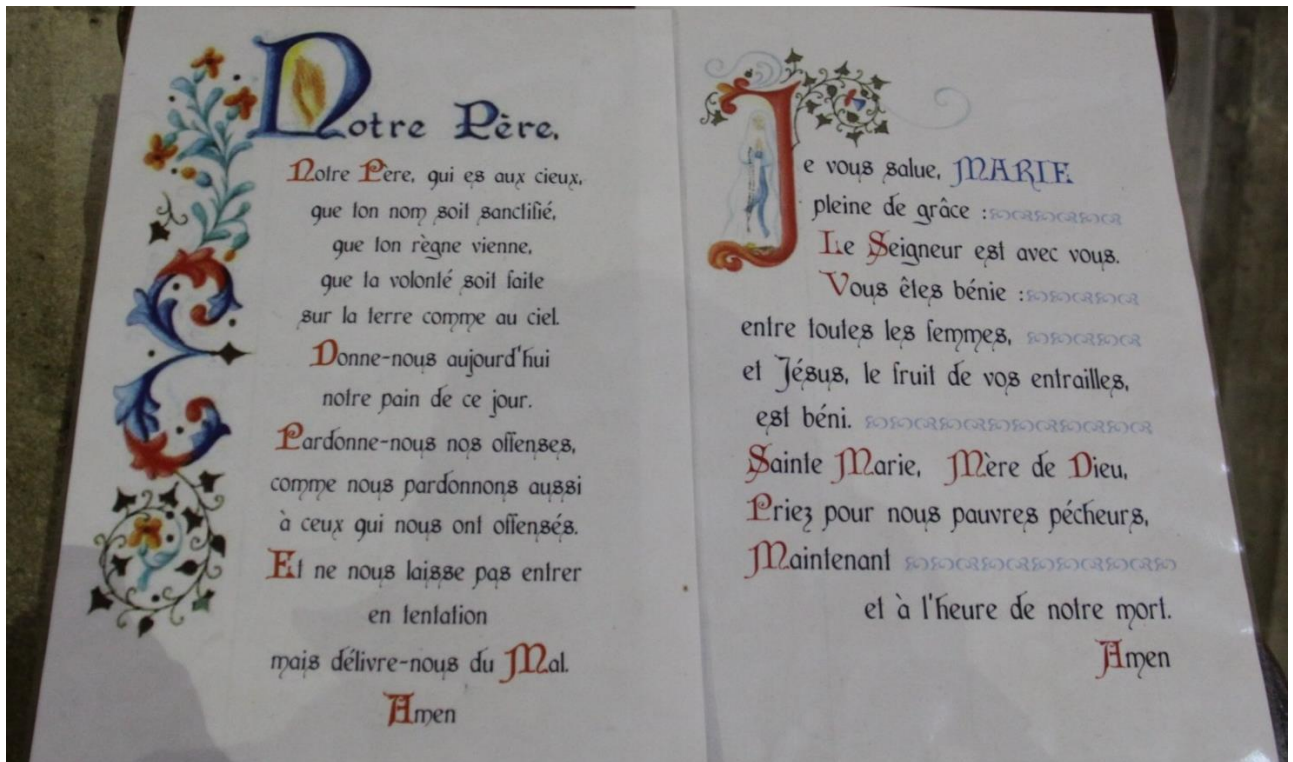 Notre Père,
Notre Père, qui es aux cieux,
que ton nom soit sanctifié,
que ton règne vienne,
que ta volonté soit faite
sur la terre comme au ciel.
Donne-nous aujourd'hui
notre pain de ce jour.
Pardonne-nous nos offenses,
comme nous pardonnons aussi
à ceux qui nous ont offensés.
Et ne nous laisse pas entrer
en tentation
mais délivre-nous du Mal.
Amen
Je vous salue, MARIE
pleine de grâce :
Le Seigneur est avec vous.
Vous êtes bénie :
entre toutes les femmes,
et Jésus, le fruit de vos entrailles,
est béni.
Sainte Marie, Mère de Dieu,
Priez pour nous pauvres pécheurs,
Maintenant
et à l'heure de notre mort.
Amen